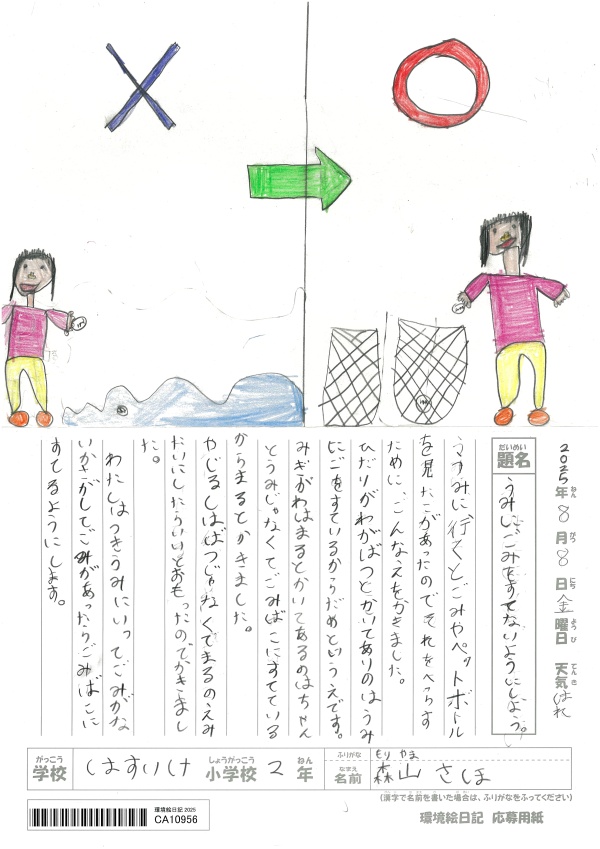 2025年8月8日金曜日 天気はれ
ねん がつ にち ようび てんき
だいめい
題名 うみにごみをすてないようにしよう。
うみに行くとごみやペットボトル
を見たこがあったのでそれをへらす
ために、こんなえをかきました。
ひだりがわがばつとかいてありのはうみ
にごをすているからだめというえです。
みぎがわはまるとかいてあるのはちゃん
とうみじゃなくて、ごみばこにすてている
からまるとかきました。
やじるしはばつじゃなくてまるのえみ
たいにしたらいいとおもったのでかきまし
た。
わたしはつぎうみにいってごみがな
いかさがしてごみがあったらごみばこに
すてるようにします。
がっこう しょうがっこう ねん
学校 はすいけ 小学校 2年
ふりがな もり やま
なまえ
名前 森山 さほ
(漢字で名前を書いた場合は、ふりがなをふってください)
環境絵日記 2025
CA10956
環境絵日記 応募用紙